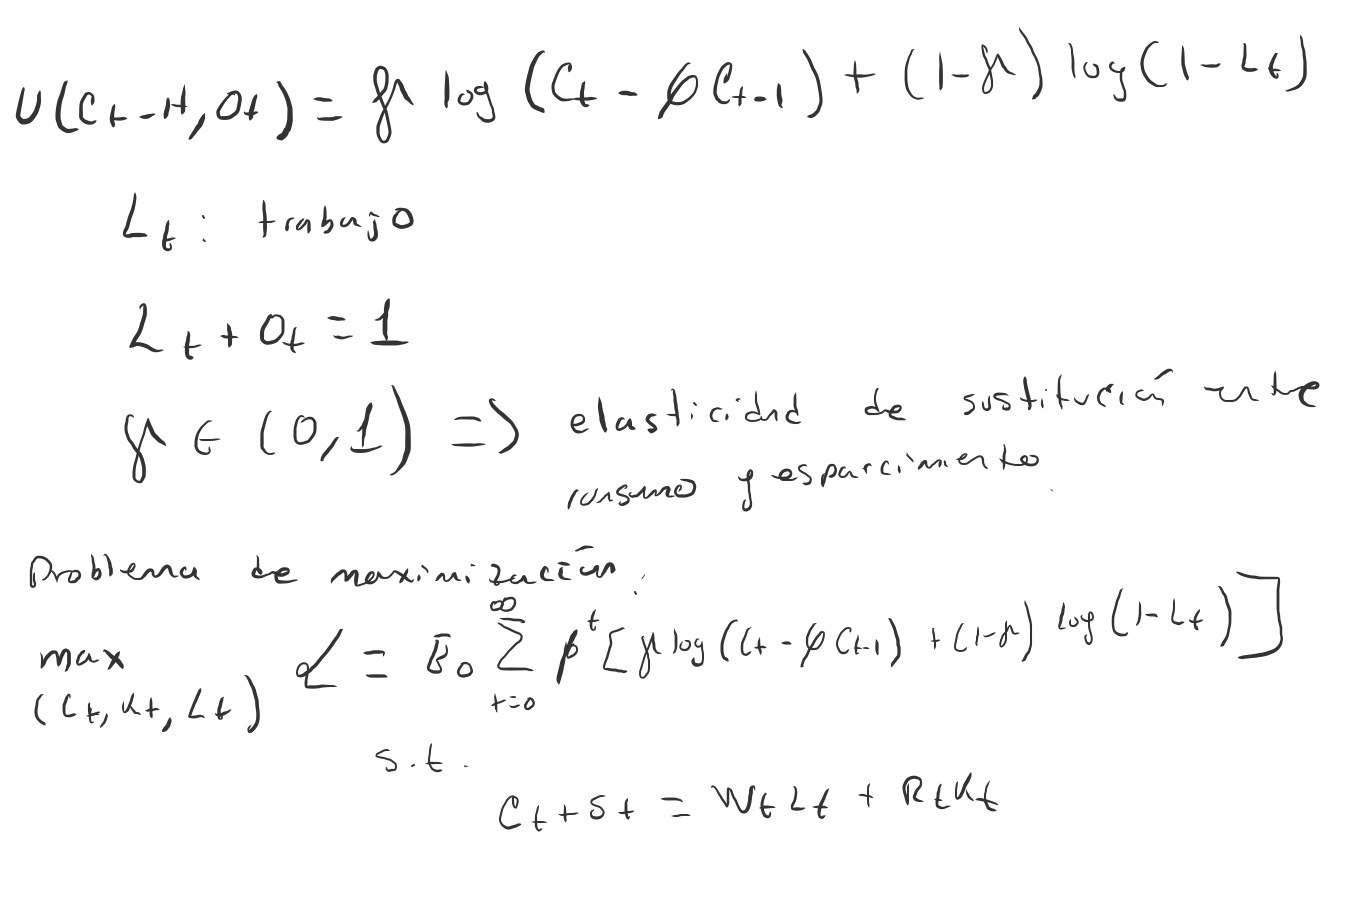 U(C_t - H, O_t) = γ log (C_t - φ C_{t-1}) + (1-γ) log(1 - L_t)
L_t : trabajo
L_t + O_t = 1
γ ∈ (0,1) => elasticidad de sustitución entre
consumo y esparcimiento.
Problema de maximización:
max (C_t, K_t, L_t) ℒ = E_0 ∑_{t=0}^{∞} β^t [γ log (C_t - φ C_{t-1}) + (1-γ) log (1 - L_t)]
s.t.
C_t + S_t = W_t L_t + R_t K_t